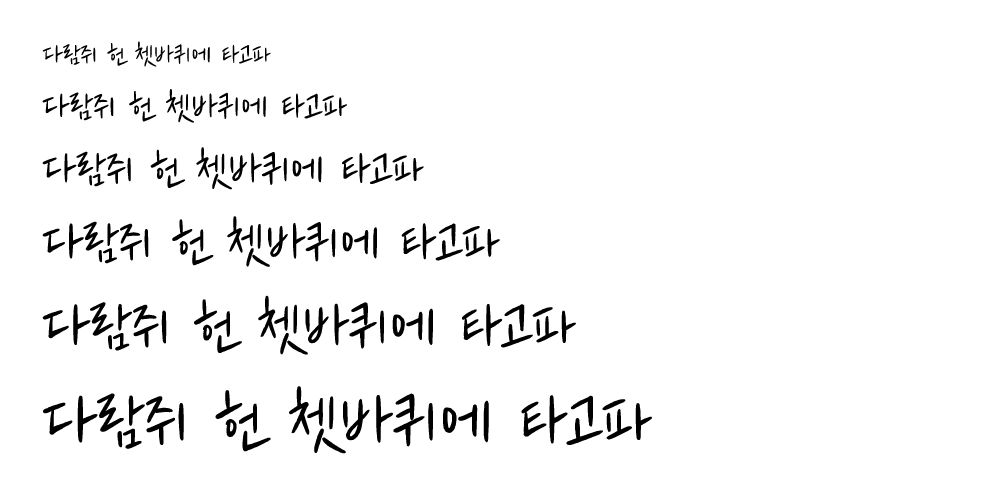 다람쥐 헌 쳇바퀴에 타고파
다람쥐 헌 쳇바퀴에 타고파
다람쥐 헌 쳇바퀴에 타고파
다람쥐 헌 쳇바퀴에 타고파
다람쥐 헌 쳇바퀴에 타고파
다람쥐 헌 쳇바퀴에 타고파